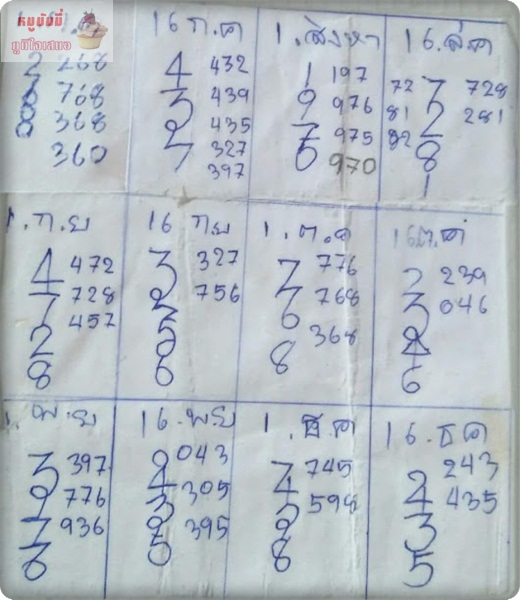 หมูมันนี่
ภูมิใจเสนอ
16 ก.ค
4 432
3 439
2 435
7 327
397
1. สิงหา
1 197
9 976
7 975
6 970
16. สิค
72 7 728
81 2 281
82 8
1
268
768
368
360
1. ก. ย
4 472
7 728
2 457
8
16 ก.ย
3 327
2 756
5
6
1. ต. ค
7 776
7 768
6 368
8
2 239
3 046
4
6
1. พ. ย
3 397
9 776
7 936
6
16. พย
2 043
3 305
395
1. ธ. ค
7 745
4 598
8
16. ธ ค
2 243
4 435
3
5